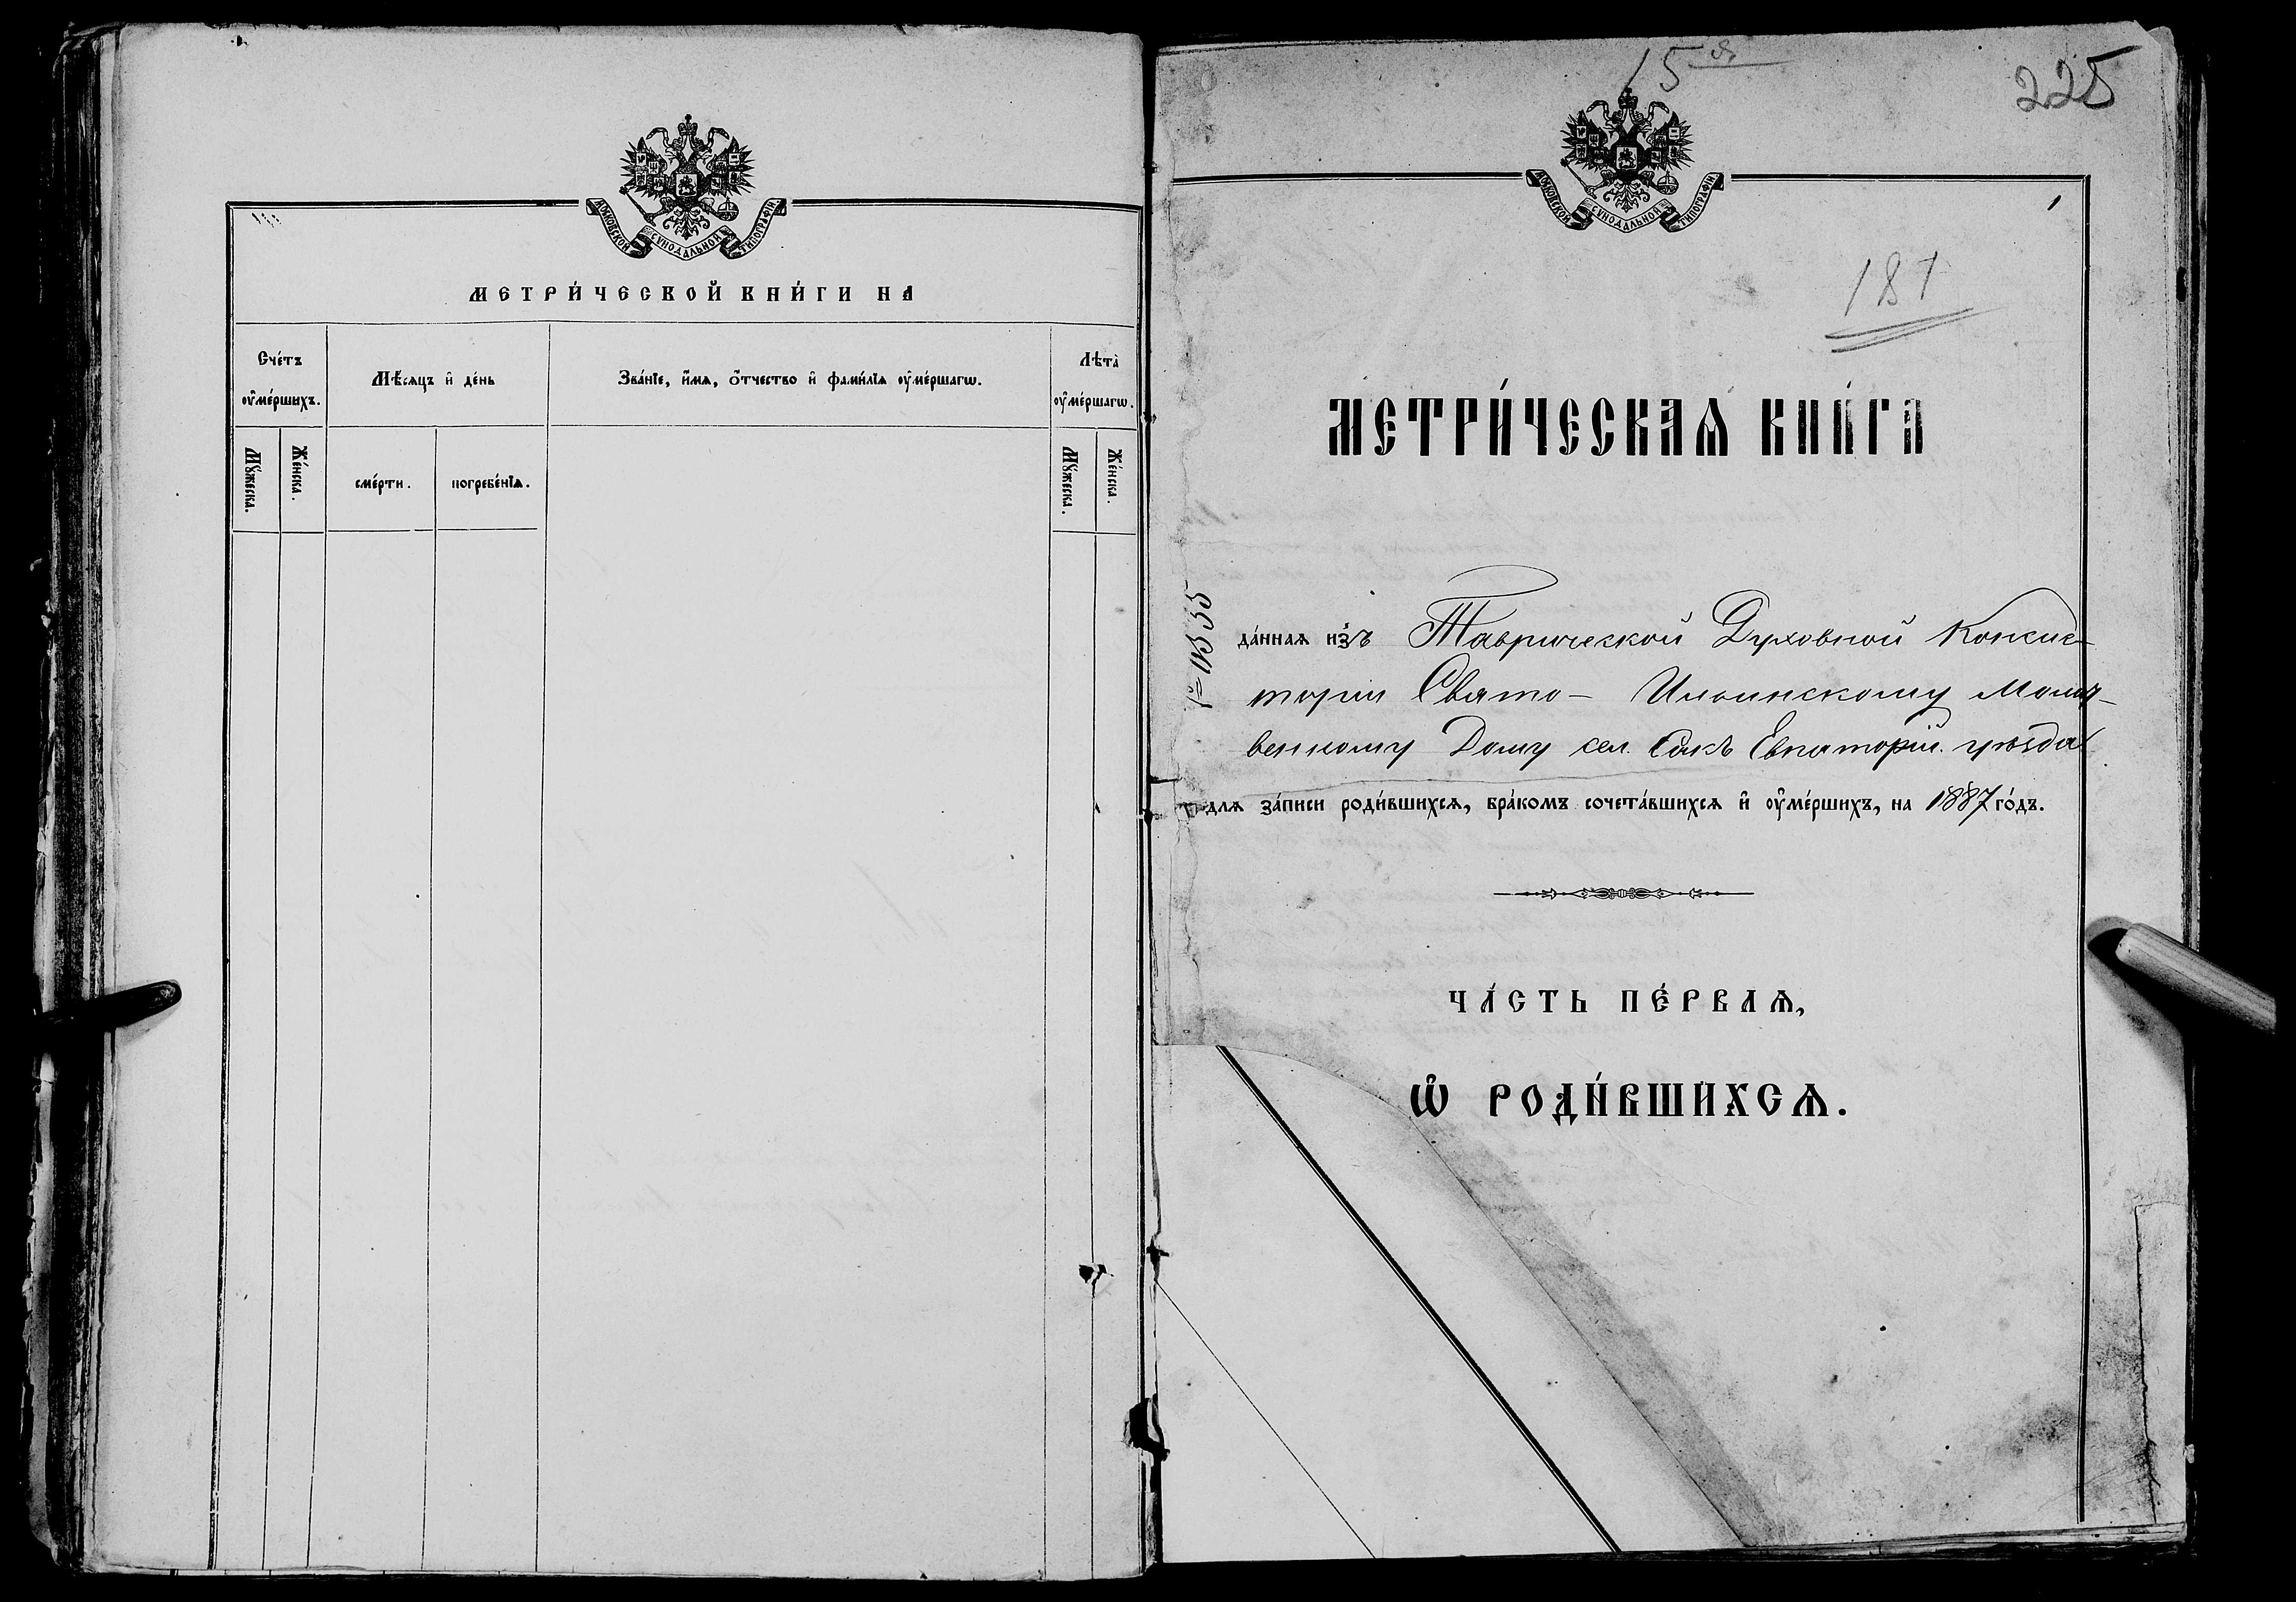 МОСКОВСКОЙ СѴНОДАЛЬНОЙ ТИПОГРАФІИ
МЕТРИ́ЧЕСКОЙ КНИ́ГИ НА
Сче́тъ ᲂу҆ме́ршихъ.
Мѣ́сяцъ и҆ де́нь
Зва́нїе, и҆́мѧ, ѻ҆́тчество и҆ фами́лїѧ ᲂу҆ме́ршагѡ.
Лѣ́та ᲂу҆ме́ршагѡ.
Мꙋ́жеска.
Же́нска.
сме́рти.
погребе́нїѧ.
Мꙋ́жеска.
Же́нска.
15я
225
МОСКОВСКОЙ СѴНОДАЛЬНОЙ ТИПОГРАФІИ
181
МЕТРИ́ЧЕСКАѦ КНИ́ГА
да́ннаѧ и҆зъ Таврической Духовной Консис-
торіи Свято- Ильинскому Молит-
венному Дому сел. Сакъ Евпаторій. уѣзда
для за́писи роди́вшихсѧ, бра́комъ сочета́вшихсѧ и҆ ᲂу҆ме́ршихъ, на 1887 го́дъ.
ЧА́СТЬ ПЕ́РВАѦ,
Ѡ҆ РОДИ́ВШИХСѦ.